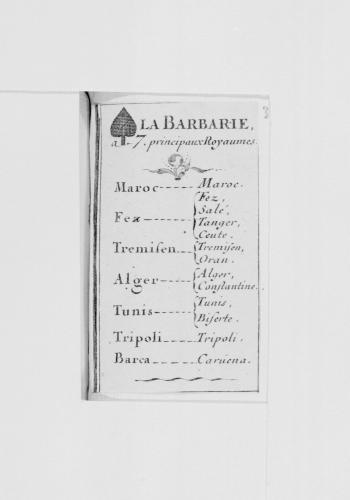 3
LA BARBARIE,
a 7. principaux Royaumes.
Maroc ----- Maroc.
Fez,
Salé,
Fex ------ Tanger,
Ceute.
Tremisen --- Tremisen,
Oran.
Alger ----- Alger,
Constantine.
Tunis ----- Tunis,
Biserte.
Tripoli ---- Tripoli.
Barca ----- Caruena.